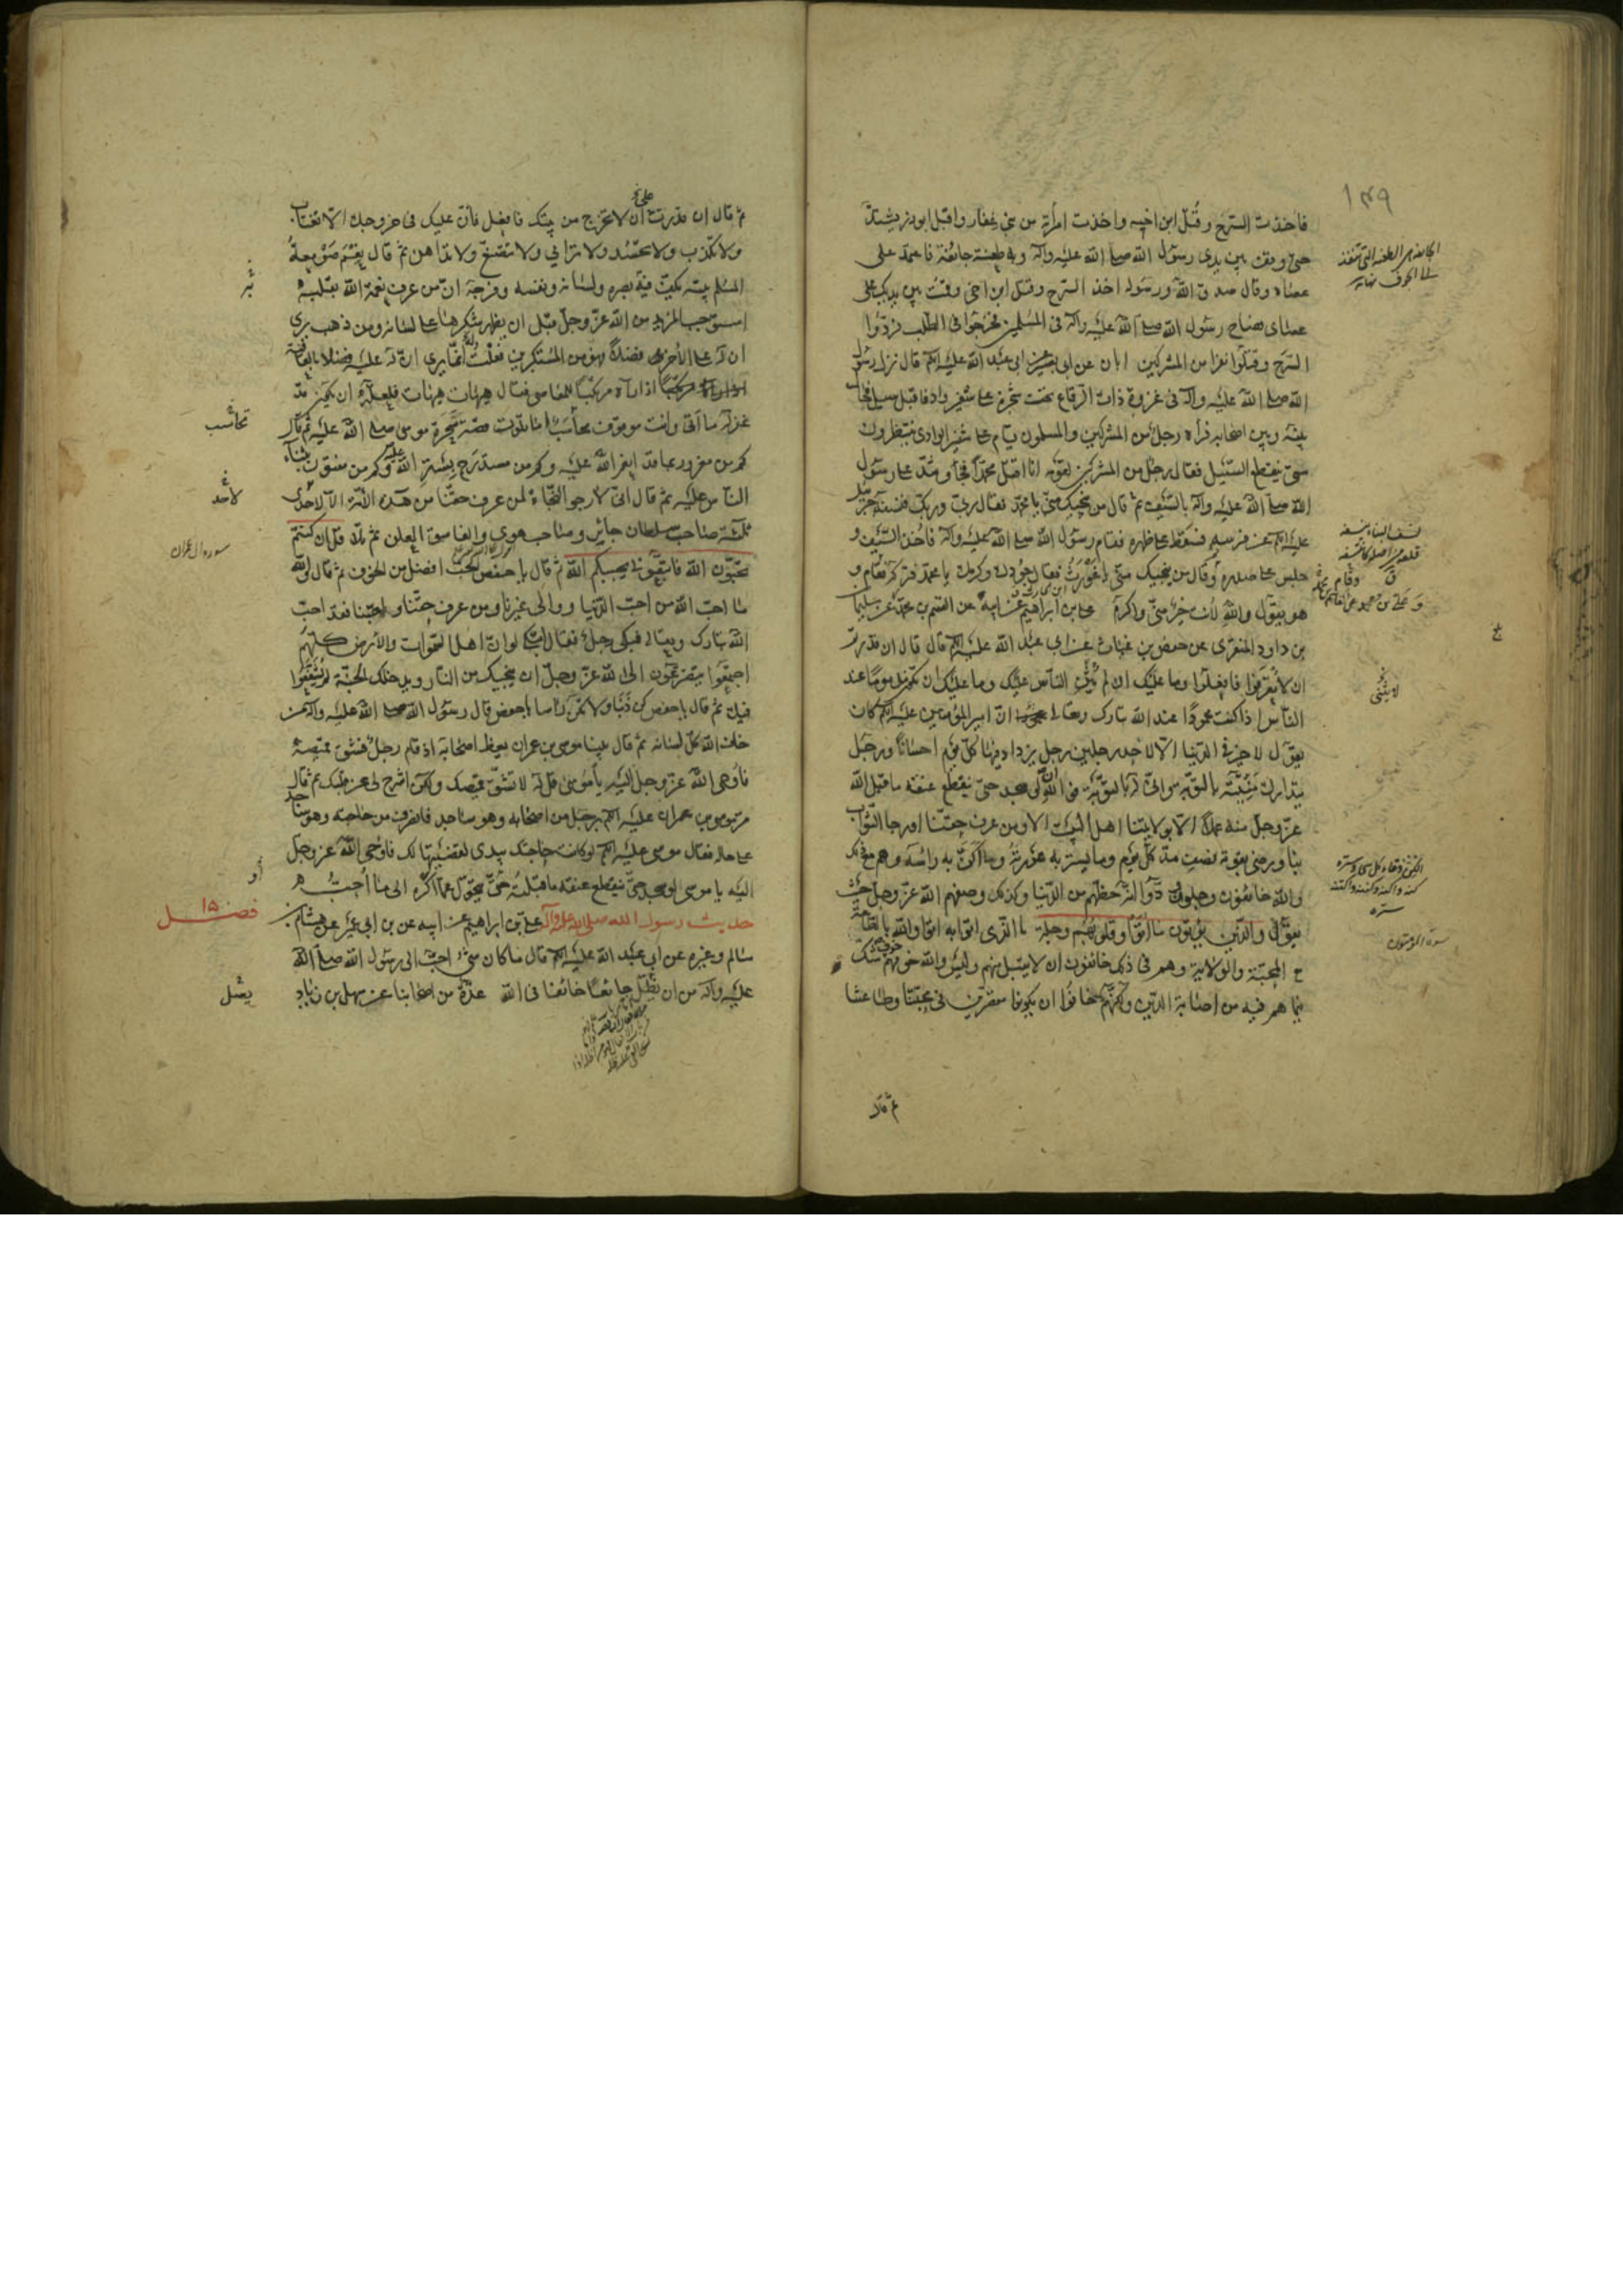 ١٣٩
فاخذت السرح و قُتل ابن اخيه واخذت امرأة من بني غفار واقبل ابوذر يشتدّ
حتى وقف بين يدى رسول الله صلى الله عليه وآله وبه طعنة جائفة فاعتمد على
عصاه وقال صدق الله ورسوله اخذ السرح وقتل ابن اخى وقمت بين يديك على
عصاى فصاح رسول الله صلى الله عليه وآله فى المسلمين فخرجوا فى الطلب فردّوا
السرح وقتلوا نفرا من المشركين ابان عن ابى بصير عن ابى عبد الله عليه السلم قال نزل رسول
الله صلى الله عليه وآله فى غزوة ذات الرقاع تحت شجرة على شفير واد فاقبل سيل فحال
بينه وبين اصحابه فرآه رجل من المشركين والمسلمون قيام على شفير الوادى ينتظرون
متى ينقطع السيل فقال رجل من المشركين لقومه انا اقتل محمدا فجاء وشدّ على رسول
الله صلى الله عليه وآله بالسيف ثم قال من ينجيك منّى يا محمد فقال ربى وربك فنسفه جبرئيل
عليه السلم عن فرسه فسقط على ظهره فقام رسول الله صلى الله عليه وآله فاخذ السيف و
جلس على صدره وقال من ينجيك منّى يا غورث فقال جودك وكرمك يا محمد فتركه فقام و
هو يقول والله لانت خير منّى واكرم على بن ابراهيم عن ابيه عن القسم بن محمد عن سليمان
بن داود المنقرى عن حفص بن غياث عن ابى عبد الله عليه السلم قال قال ان قدرتم
ان لا تُعرفوا فافعلوا وما عليك ان لم يُثن الناس عليك وما عليك ان تكون مذموما عند
الناس اذا كنت محمودا عند الله تبارك وتعالى انّ امير المؤمنين عليه السلم كان
يقول لا خير فى الدنيا الّا لاحد رجلين رجل يزداد فيها كلّ يوم احسانا ورجل
يتدارك منيّته بالتوبة وانّى له بالتوبة فوالله ان لو سجد حتى ينقطع عنقه ما قبل الله
عزّ وجلّ منه عملا الّا بولايتنا اهل البيت الا ومن عرف حقّنا اورجا الثواب
بنا ورضى بقوته نصف مدّ كلّ يوم وما يستر به عورته وما اكنّ به رأسه وهم مع ذلك
والله خائفون وجلون ودّوا انّه حظّهم من الدنيا وكذلك وصفهم الله عزّ وجلّ حيث
يقول والّذين يؤتون ما اتوا وقلوبهم وجلة ما الّذى اتوا به اتوا والله بالطاعة
مع المحبّة والولاية وهم فى ذلك خائفون ان لا يقبل منهم وليس والله خوفهم خوف شك
فيما هم فيه من اصابة الدين ولكنّهم خافوا ان يكونوا مقصّرين فى محبّتنا وطاعتنا
ثم قال
ثم قال ان قدرت على ان لا تخرج من بيتك فافعل فانّ عليك فى خروجك الّا تغتاب
ولا تكذب ولا تحسد ولا ترائى ولا تتصنع ولا تداهن ثم قال نعم صومعة
المسلم بيته يكفّ فيه بصره ولسانه ونفسه وفرجه انّ من عرف نعمة الله بقلبه
استوجب المزيد من الله عزّ وجلّ قبل ان يظهر شكرها على لسانه ومن ذهب يرى
ان له على الآخر فضلا فهو من المستكبرين فقلت له انّما يرى ان له عليه فضلا بالعافية
اذا رآه مرتكبا للمعاصى فقال هيهات هيهات فلعلّه ان يكون قد
غفر له ما اتى وانت موقوف محاسب اما تلوت قصّة سحرة موسى صلى الله عليه ثم قال
كم من مغرور بما قد انعم الله عليه وكم من مستدرج بستر الله عليه وكم من مفتون بثناء
الناس عليه ثم قال انّى لارجو النجاة لمن عرف حقّنا من هذه الامّة الّا لاحد
ثلثة صاحب سلطان جائر وصاحب هوى والفاسق المعلن ثم تلا قل ان كنتم
تحبّون الله فاتبعونى يحببكم الله ثم قال يا حفص الحبّ افضل من الخوف ثم قال والله
ما احبّ الله من احبّ الدنيا ووالى غيرنا ومن عرف حقّنا واحبّنا فقد احبّ
الله تبارك وتعالى فبكى رجل فقال اتبكى لو انّ اهل السموات والارض كلّهم
اجتمعوا يتضرّعون الى الله عزّ وجلّ ان ينجيك من النار ويدخلك الجنّة لم يشفّعوا
فيك ثم قال يا حفص كن ذنبا ولا تكن رأسا يا حفص قال رسول الله صلى الله عليه وآله من
خاف الله كلّ لسانه ثم قال بينا موسى بن عمران يعظ اصحابه اذ قام رجل فشقّ قميصه
فاوحى الله عزّ وجلّ اليه يا موسى قل له لا تشقّ قميصك ولكن اشرح لى عن قلبك ثم قال
مرّ موسى بن عمران عليه السلم برجل من اصحابه وهو ساجد فانصرف من حاجته وهو ساجد
على حاله فقال موسى عليه السلم لو كانت حاجتك بيدى لقضيتها لك فاوحى الله عزّ وجلّ
اليه يا موسى لو سجد حتى ينقطع عنقه ما قبلته حتى يتحوّل عمّا اكره الى ما احبّ
حديث رسول الله صلى الله عليه وآله على بن ابراهيم عن ابيه عن بن ابى عمير عن هشام بن
سالم وغيره عن ابى عبد الله عليه السلم قال ما كان شىء احبّ الى رسول الله صلى الله
عليه وآله من ان يظلّ جائعا خائفا فى الله عدّة من اصحابنا عن سهل بن زياد
تحاسب
لاحد
سورة ال عمران
فصل ١٥